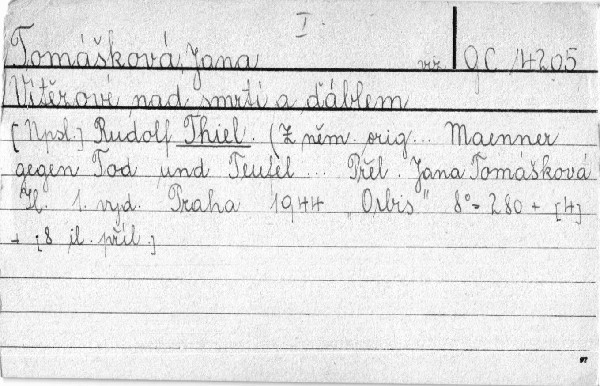 I.
Tomášková, Jana viz. QC /4205
Vítězové nad smrtí a ďáblem
[Npsl.] Rudolf Thiel. (Z něm. orig... Maenner
gegen Tod und Teufel... Přel. Jana Tomášková
Il. 1. vyd. Praha 1944 „Orbis" 8° = 280 + [4]
+ [8 il. příl.]
97